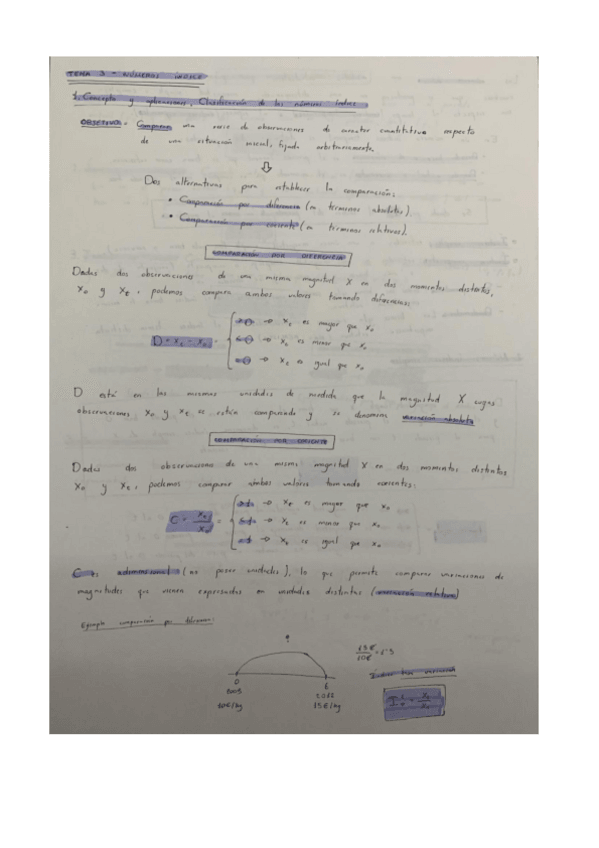 TEMA 3 - NÚMEROS ÍNDICE
1. Concepto y aplicaciones, Clasificación de los números índices
OBJETIVO - Comparar una serie de observaciones de caracter cuantitativo respecto
de una situación inicial, fijada arbitrariamente.
Dos alternativas para establecer la comparación:
• Comparación por diferencia (en términos absolutos).
• Comparación por cociente (en términos relativos).
COMPARACIÓN POR DIFERENCIA
Dadas dos observaciones de una misma magnitud X en dos momentos distintos,
X₀ y Xt, podemos comparar ambos valores tomando diferencias:
D = Xt - X₀ =
>0 → Xt es mayor que X₀
<0 → Xt es menor que X₀
=0 → Xt es igual que X₀
D está en las mismas unidades de medida que la magnitud X cuyas
observaciones X₀ y Xt se están comparando y se denomina variación absoluta
COMPARACIÓN POR COCIENTE
Dadas dos observaciones de una misma magnitud X en dos momentos distintos
X₀ y Xt, podemos comparar ambos valores tomando cocientes:
C =
>1 → Xt es mayor que X₀
<1 → Xt es menor que X₀
=1 → Xt es igual que X₀
C es adimensional (no posee unidades), lo que permite comparar variaciones de
magnitudes que vienen expresadas en unidades distintas (variación relativa)
Ejemplo comparación por diferencia:
0 t
10€/kg 15€/kg